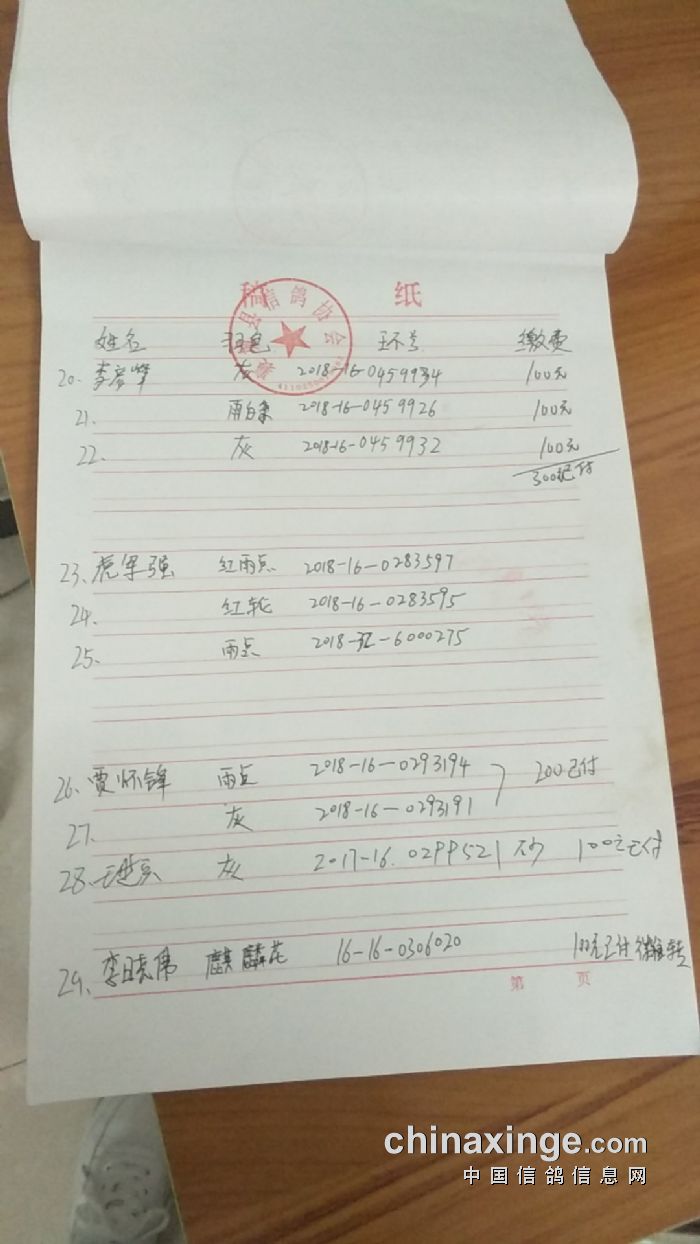 稿 纸
县信鸽协会
姓名 羽色 环号 缴费
20. 李彦峰 灰 2018-16-0459934 100元
21. 雨白条 2018-16-0459926 100元
22. 灰 2018-16-0459932 100元
300元已付
23、虎军强 红雨点 2018-16-0283597
24. 红轮 2018-16-0283595
25、 雨点 2018-翔-6000275
26、贾怀锋 雨点 2018-16-0293194 200已付
27. 灰 2018-16-0293191
28. 灰 2017-16.0299521 100元已付
29、李晓伟 麒麟花 16-16-0306020 100元已付
第 页
chinaxinge.com
中国信鸽信息网